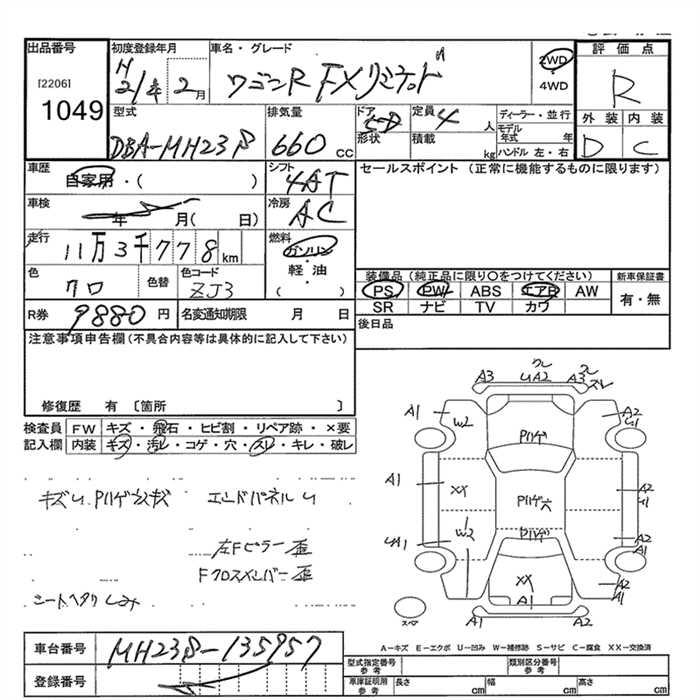 出品番号
[2206]
1049
初度登録年月
H
21年 2月
車名・グレード
ワゴンR FXリミテッド
2WD
4WD
評価点
R
外装 内装
D C
型式
DBA-MH23S
排気量
660 CC
ドア
形状
定員 4 人
積載 kg
ディーラー・並行
モデル
年式 年
ハンドル 左・右
車歴
自家用・( )
シフト
4AT
セールスポイント (正常に機能するものに限ります)
車検
年 月( 日)
冷房
AC
走行
11万3千778km
燃料
ガソリン
軽油
( )
色
クロ
色替
色コード
ZJ3
装備品(純正品に限り○をつけてください)
PS PW ABS エアB AW
SR ナビ TV カワ
新車保証書
有・無
R券 9880円
名変通知期限 月 日
後日品
注意事項申告欄(不具合内容等は具体的に記入して下さい)
修復歴 有 〔箇所 〕
検査員
記入欄
FW キズ・飛石・ヒビ割・リペア跡・×要
内装 キズ・汚レ・コゲ・穴・スレ・キレ・破レ
キズU Pハゲ
エンドパネルU
左Fピラー歪
Fクロスメンバー歪
シートヘタリ シミ
A3 UA2 A3
スレ
A1 W2 Pハゲ A2
U1
A1 XX Pハゲ穴 A2
U1
Pハゲ
UA1 W2 A2
A1
XX A2
A1 A1
スペア
A-キズ E-エクボ U-凹み W-補修跡 S-サビ C-腐食 XX-交換済
車台番号
MH23S-135957
登録番号
型式指定番号
参考
類別区分番号
参考
車庫証明用
参考
長さ cm 幅 cm 高さ cm